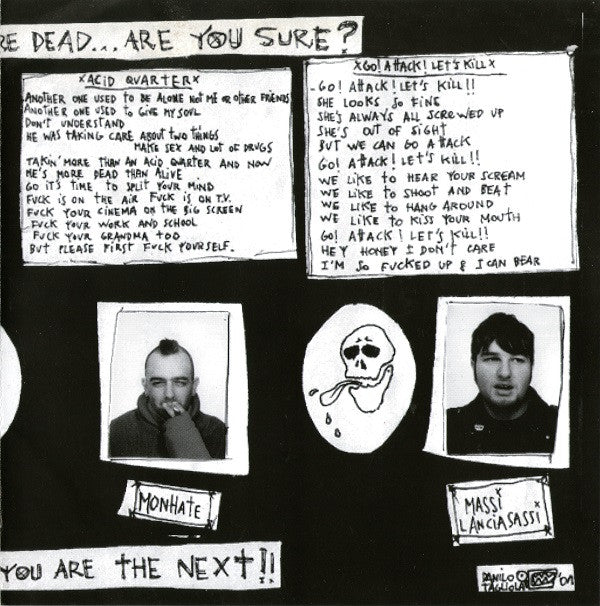 RE DEAD... ARE YOU SURE?
xACID QUARTERx
ANOTHER ONE USED TO BE ALONE NOT ME OR OTHER FRIENDS
ANOTHER ONE USED TO GIVE MY SOUL
DON'T UNDERSTAND
HE WAS TAKING CARE ABOUT TWO THINGS
MAKE SEX AND LOT OF DRUGS
TAKIN' MORE THAN AN ACID QUARTER AND NOW
HE'S MORE DEAD THAN ALIVE
GO IT'S TIME TO SPLIT YOUR MIND
FUCK IS ON THE AIR FUCK IS ON T.V.
FUCK YOUR CINEMA ON THE BIG SCREEN
FUCK YOUR WORK AND SCHOOL
FUCK YOUR GRANDMA TOO
BUT PLEASE FIRST FUCK YOURSELF.
xGO! ATTACK! LET'S KILLx
GO! ATTACK! LET'S KILL!!
SHE LOOKS SO FINE
SHE'S ALWAYS ALL SCREWED UP
SHE'S OUT OF SIGHT
BUT WE CAN GO ATTACK
GO! ATTACK! LET'S KILL!!
WE LIKE TO HEAR YOUR SCREAM
WE LIKE TO SHOOT AND BEAT
WE LIKE TO HANG AROUND
WE LIKE TO KISS YOUR MOUTH
GO! ATTACK! LET'S KILL!!
HEY HONEY I DON'T CARE
I'M SO FUCKED UP & I CAN BEAR
MONHATE
MASSI
LANCIASASSI
YOU ARE THE NEXT!!
DANILO
TAGLIOLA
'01